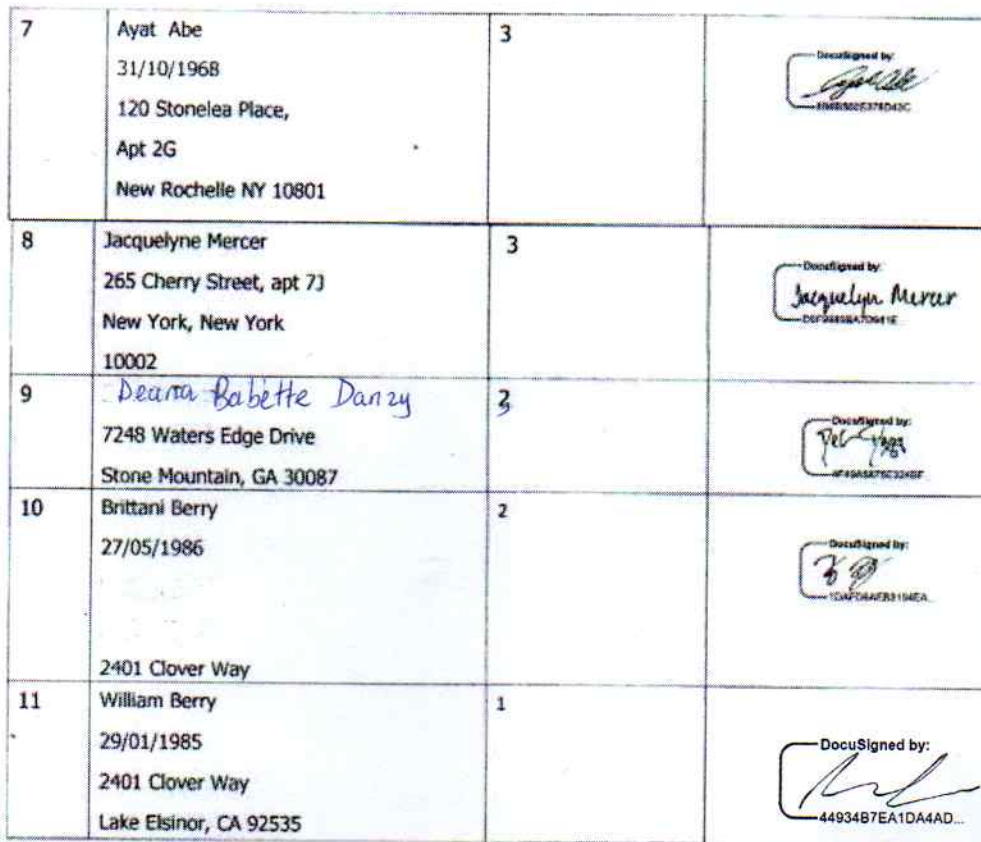 7
Ayat Abe
31/10/1968
120 Stonelea Place,
Apt 2G
New Rochelle NY 10801
3
DocuSigned by:
8
Jacquelyne Mercer
265 Cherry Street, apt 7J
New York, New York
10002
3
DocuSigned by:
Jacquelyn Mercer
9
Deana Babette Danzy
7248 Waters Edge Drive
Stone Mountain, GA 30087
DocuSigned by:
10
Brittani Berry
27/05/1986
2401 Clover Way
2
DocuSigned by:
11
William Berry
29/01/1985
2401 Clover Way
Lake Elsinor, CA 92535
1
DocuSigned by:
44934B7EA1DA4AD...